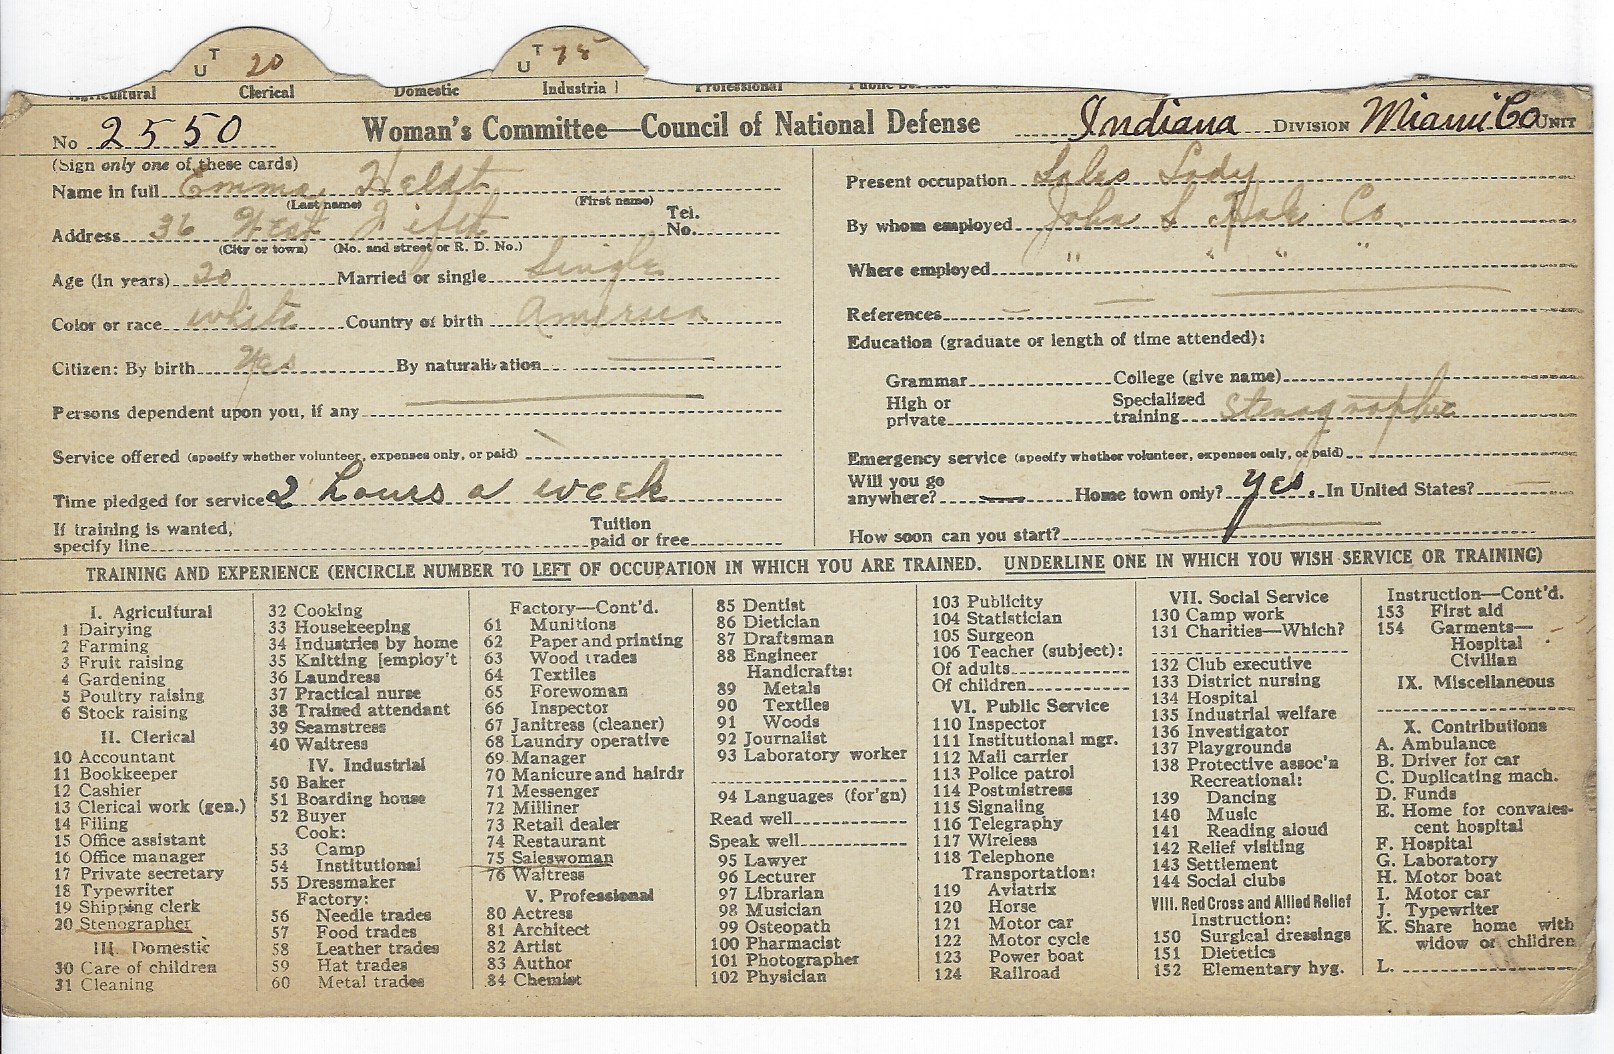 T
U 20
T
U 75
Agricultural Clerical Domestic Industrial Professional Public Service
No 2550 Woman's Committee—Council of National Defense Indiana DIVISION Miami Co UNIT
(Sign only one of these cards)
Name in full Emma Heldt
(Last name) (First name)
Address 36 West Fifth Tel. No.
(City or town) (No. and street or R. D. No.)
Age (In years) 20 Married or single Single
Color or race white Country of birth America
Citizen: By birth Yes By naturalization
Persons dependent upon you, if any
Service offered (specify whether volunteer, expenses only, or paid)
Time pledged for service 2 hours a week
If training is wanted,
specify line Tuition paid or free
Present occupation Sales Lady
By whom employed John S Hale Co
Where employed " " " "
References
Education (graduate or length of time attended):
Grammar College (give name)
High or private Specialized training Stenographic
Emergency service (specify whether volunteer, expenses only, or paid)
Will you go anywhere? — Home town only? yes. In United States?
How soon can you start?
TRAINING AND EXPERIENCE (ENCIRCLE NUMBER TO LEFT OF OCCUPATION IN WHICH YOU ARE TRAINED. UNDERLINE ONE IN WHICH YOU WISH SERVICE OR TRAINING)
I. Agricultural
1 Dairying
2 Farming
3 Fruit raising
4 Gardening
5 Poultry raising
6 Stock raising
II. Clerical
10 Accountant
11 Bookkeeper
12 Cashier
13 Clerical work (gen.)
14 Filing
15 Office assistant
16 Office manager
17 Private secretary
18 Typewriter
19 Shipping clerk
20 Stenographer
III. Domestic
30 Care of children
31 Cleaning
32 Cooking
33 Housekeeping
34 Industries by home
35 Knitting [employ't
36 Laundress
37 Practical nurse
38 Trained attendant
39 Seamstress
40 Waitress
IV. Industrial
50 Baker
51 Boarding house
52 Buyer
Cook:
53 Camp
54 Institutional
55 Dressmaker
Factory:
56 Needle trades
57 Food trades
58 Leather trades
59 Hat trades
60 Metal trades
Factory—Cont'd.
61 Munitions
62 Paper and printing
63 Wood trades
64 Textiles
65 Forewoman
66 Inspector
67 Janitress (cleaner)
68 Laundry operative
69 Manager
70 Manicure and hairdr
71 Messenger
72 Milliner
73 Retail dealer
74 Restaurant
75 Saleswoman
76 Waitress
V. Professional
80 Actress
81 Architect
82 Artist
83 Author
84 Chemist
85 Dentist
86 Dietician
87 Draftsman
88 Engineer
Handicrafts:
89 Metals
90 Textiles
91 Woods
92 Journalist
93 Laboratory worker
94 Languages (for'gn)
Read well
Speak well
95 Lawyer
96 Lecturer
97 Librarian
98 Musician
99 Osteopath
100 Pharmacist
101 Photographer
102 Physician
103 Publicity
104 Statistician
105 Surgeon
106 Teacher (subject):
Of adults
Of children
VI. Public Service
110 Inspector
111 Institutional mgr.
112 Mail carrier
113 Police patrol
114 Postmistress
115 Signaling
116 Telegraphy
117 Wireless
118 Telephone
Transportation:
119 Aviatrix
120 Horse
121 Motor car
122 Motor cycle
123 Power boat
124 Railroad
VII. Social Service
130 Camp work
131 Charities—Which?
132 Club executive
133 District nursing
134 Hospital
135 Industrial welfare
136 Investigator
137 Playgrounds
138 Protective assoc'n
Recreational:
139 Dancing
140 Music
141 Reading aloud
142 Relief visiting
143 Settlement
144 Social clubs
VIII. Red Cross and Allied Relief
Instruction:
150 Surgical dressings
151 Dietetics
152 Elementary hyg.
Instruction—Cont'd.
153 First aid
154 Garments—
Hospital
Civilian
IX. Miscellaneous
X. Contributions
A. Ambulance
B. Driver for car
C. Duplicating mach.
D. Funds
E. Home for convales-
cent hospital
F. Hospital
G. Laboratory
H. Motor boat
I. Motor car
J. Typewriter
K. Share home with
widow or children
L.